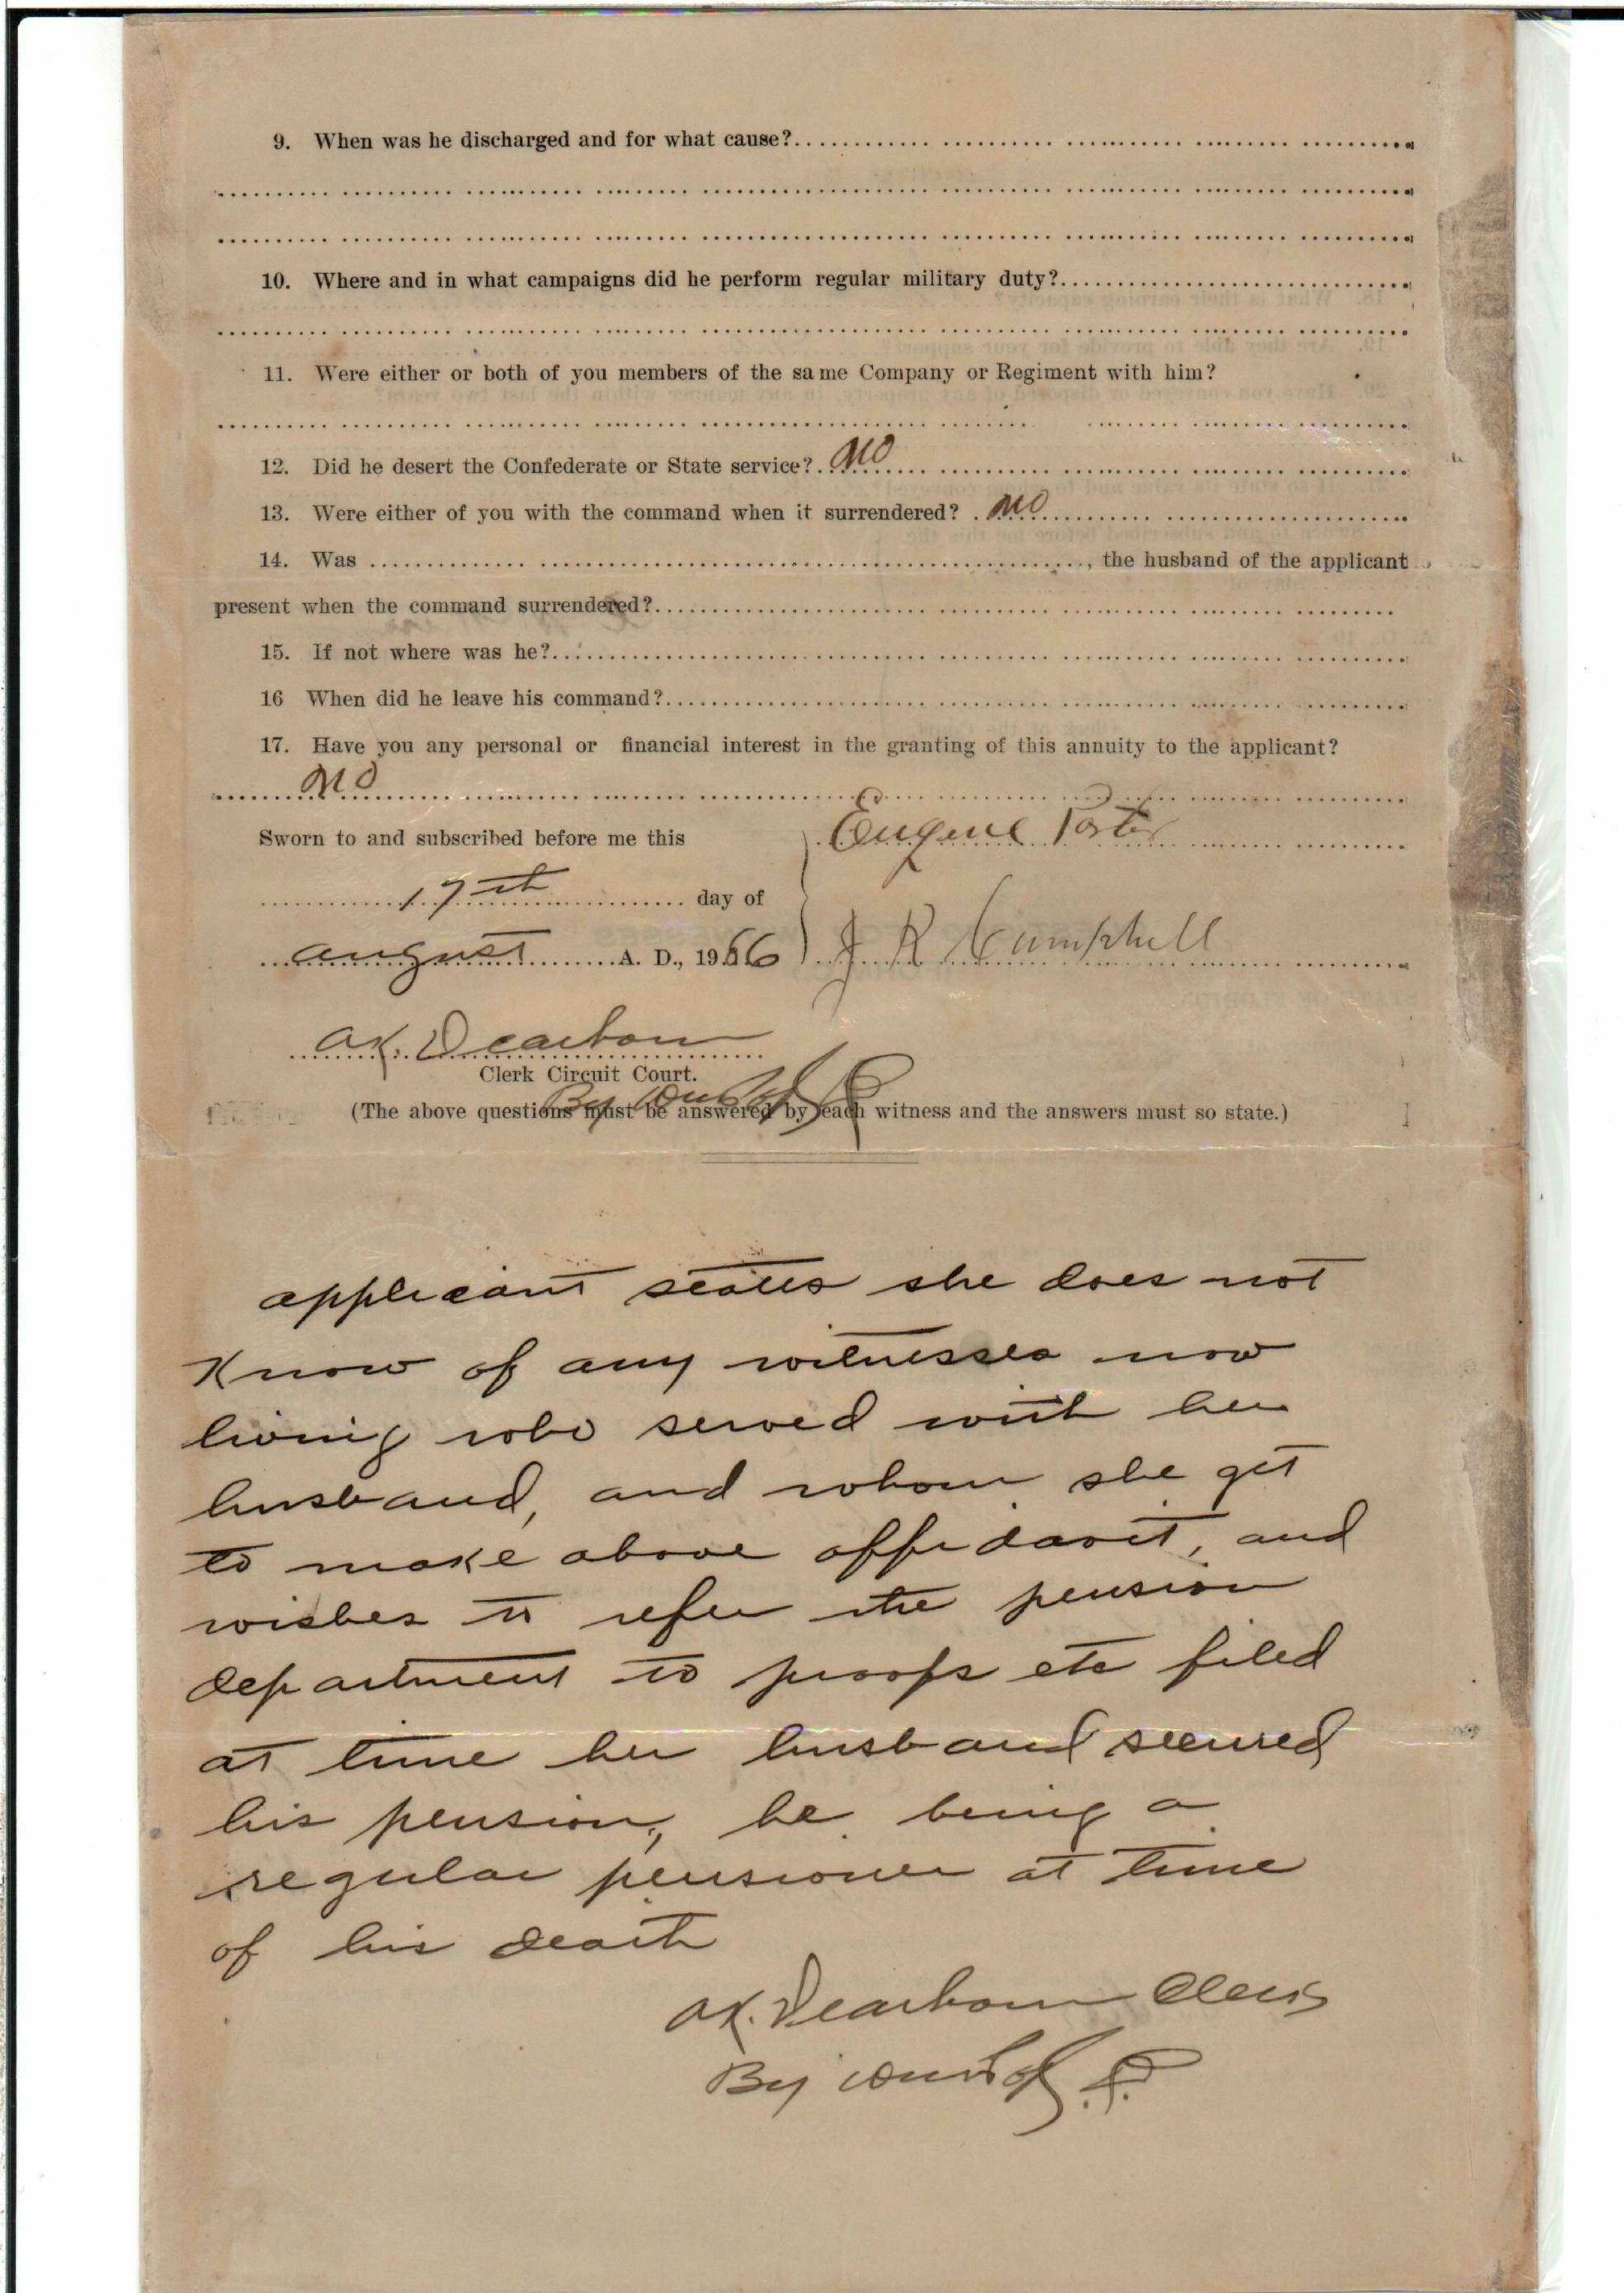 9. When was he discharged and for what cause?
10. Where and in what campaigns did he perform regular military duty?
11. Were either or both of you members of the same Company or Regiment with him?
12. Did he desert the Confederate or State service? No
13. Were either of you with the command when it surrendered? No
14. Was , the husband of the applicant
present when the command surrendered?
15. If not where was he?
16 When did he leave his command?
17. Have you any personal or financial interest in the granting of this annuity to the applicant?
No
Eugene Porter
Sworn to and subscribed before me this
17th day of
August A. D., 19 J R Campbell
A.K. Dearborn
Clerk Circuit Court.
By
(The above questions must be answered by each witness and the answers must so state.)
applicant states she does not
Know of any witnesses now
living who served with her
husband, and whom she get
to make above affidavit, and
wishes to refer the pension
department to proofs etc filed
at time her husband secured
his pension, he being a
regular pensioner at time
of his death
A.K. Dearborn Clerk
By